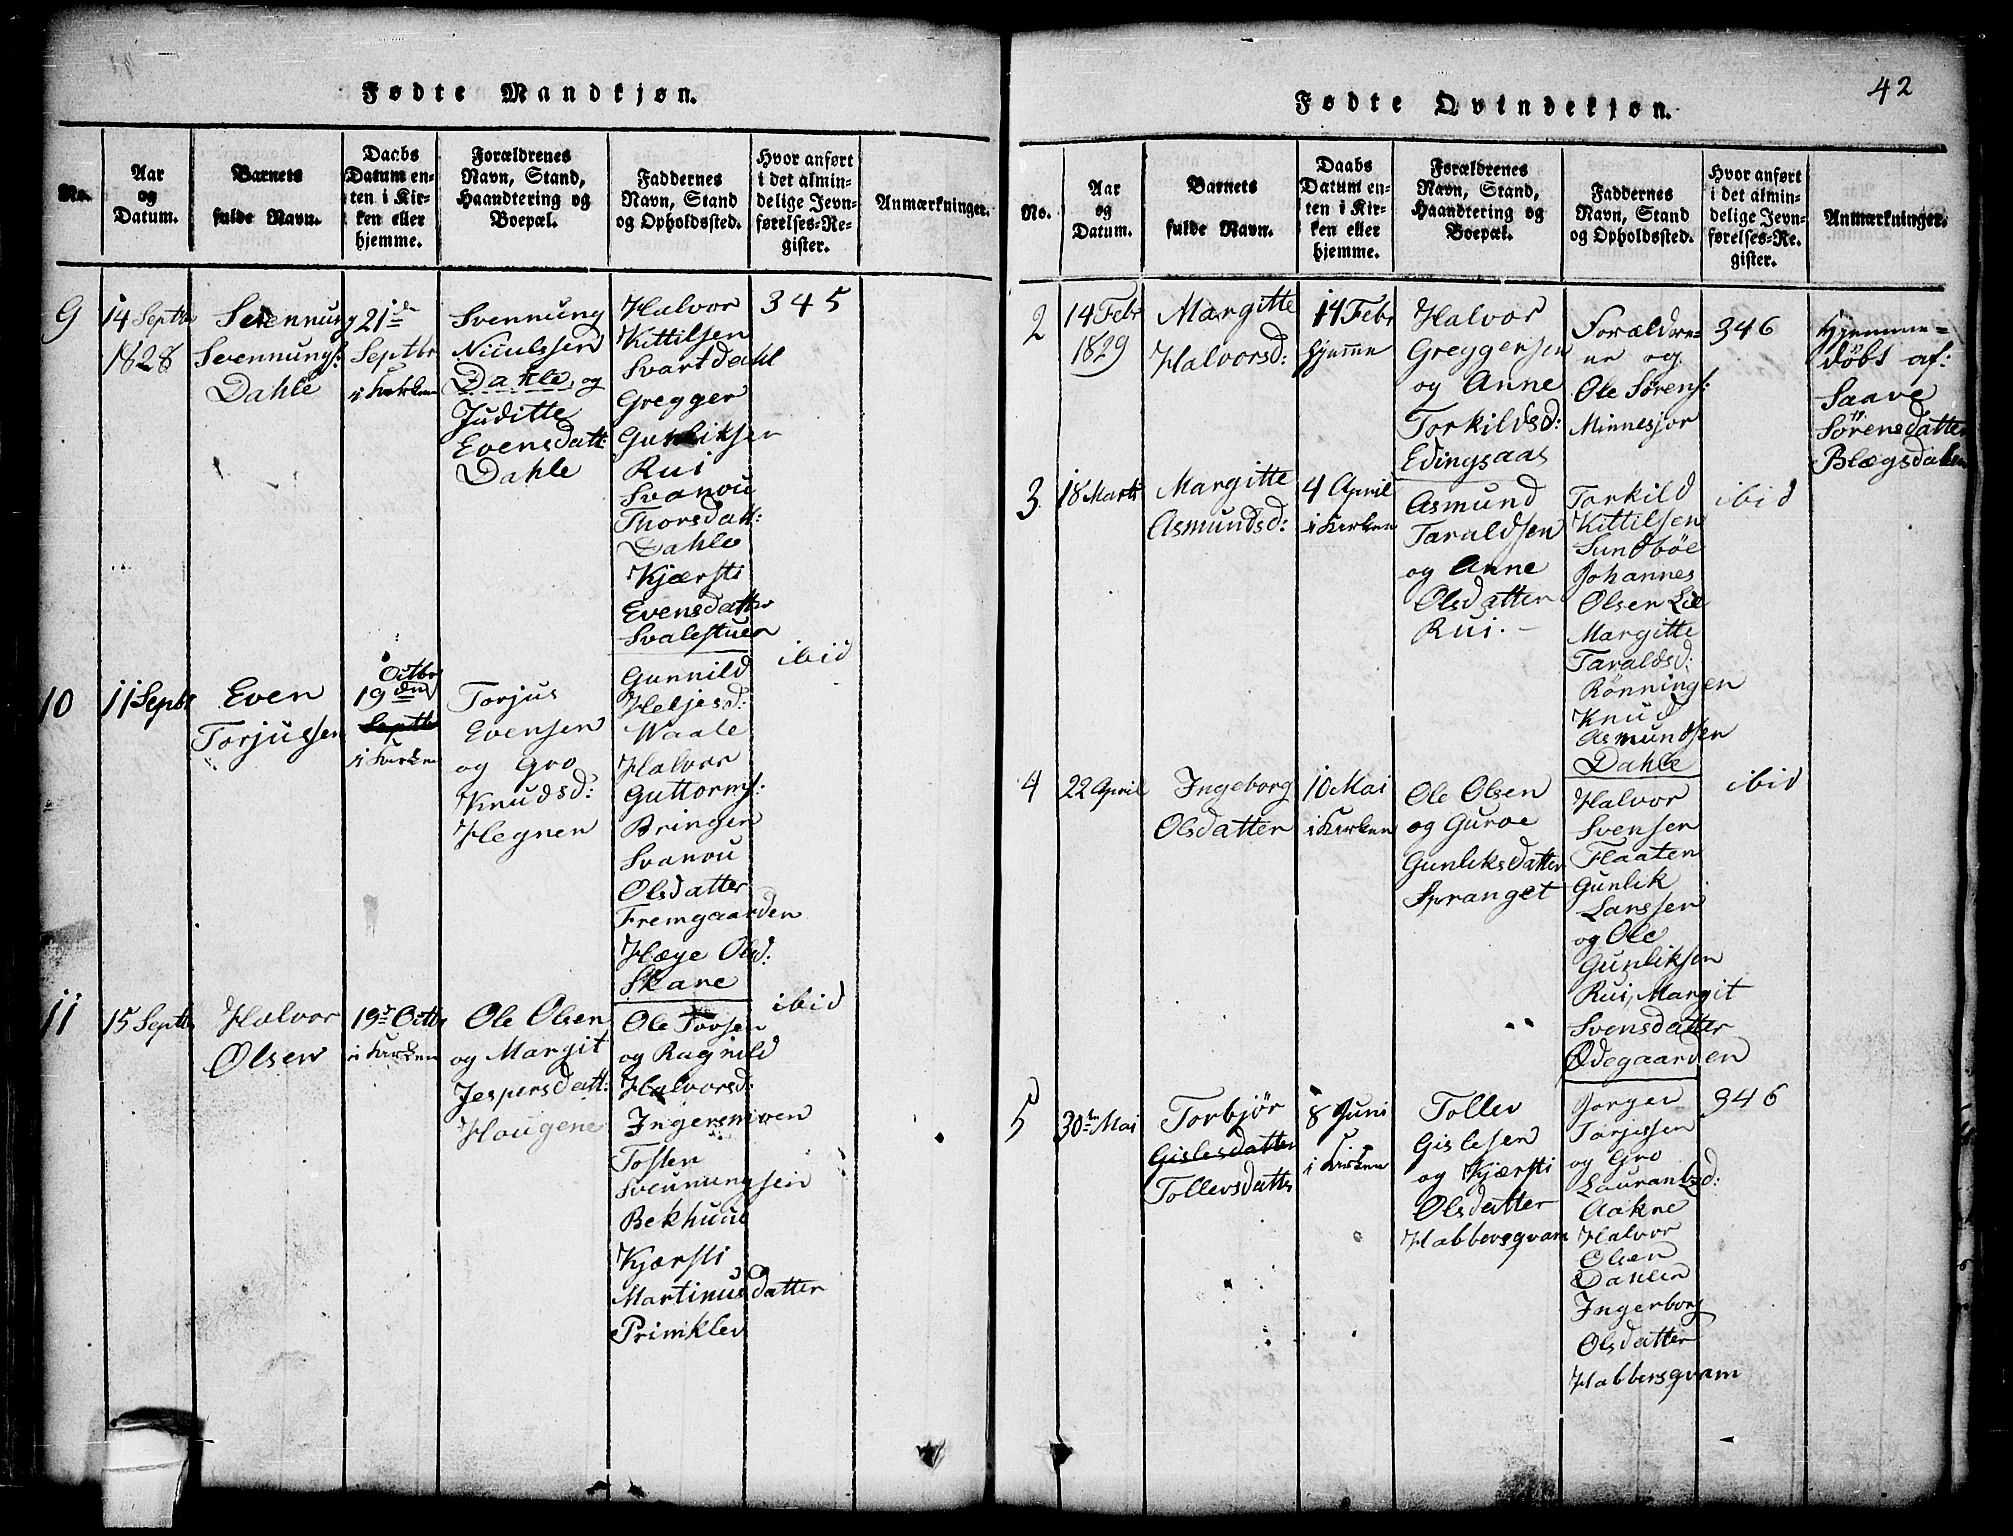 Fødte Mandkjøn.
No.
Aar
og
Datum.
Barnets
fulde Navn.
Daabs
Datum en-
ten i Kir-
ken eller
hjemme.
Forældrenes
Navn, Stand,
Haandtering og
Boepæl.
Faddernes
Navn, Stand
og Opholdssted.
Hvor anført
i det almin-
delige Jevn-
førelses-Re-
gister.
Anmærkninger.
9
14 Septbr
1828
Svennung
Svennungs:
Dahle
21de
Septbr
i Kirken
Svennung
Niculssen
Dahle, og
Juditte
Evensdatt:
Dahle
Halvor
Kittilsen
Svartdahl
Gregger
Gunliksen
Rui
Svanou
Thorsdatt:
Dahle
Kjærsti
Evensdatter
Svalestuen
345
10
11 Septbr
Even
Torjussen
Octbr
19den
Septbr
i Kirken
Torjus
Evensen
og Gro
Knudsd:
Hegnen
Gunnild
Heljesd:
Waale
Halvor
Guttorms:
Bringen
Svanou
Olsdatter
Fremgaarden
Hæge Olsd:
Skare
ibid
11
15 Septbr
Halvor
Olsen
19de Octbr
i Kirken
Ole Olsen
og Margit
Jespersdatt:
Haugene
Ole Torsen
og Ragnild
Halvorsd:
Ingersmoen
Tosten
Svennungsen
Bekhuus
Kjærsti
Martinusdatter
Primklev
ibid
42
Fødte Qvindekjøn.
No.
Aar
og
Datum.
Barnets
fulde Navn.
Daabs
Datum en-
ten i Kir-
ken eller
hjemme.
Forældrenes
Navn, Stand,
Haandtering og
Boepæl.
Faddernes
Navn, Stand
og Opholdssted.
Hvor anført
i det almin-
delige Jevn-
førelses-Re-
gister.
Anmærkninger.
2
14 Febr
1829
Margitte
Halvorsd:
14 Febr
hjemme
Halvor
Greggersen
og Anne
Torkildsd:
Edingsaas
Forældre-
ne og
Ole Sørens:
Minnesjor
346
Hjemme-
døbt af:
Saave
Sørensdatter
Blægsdalen
3
18 Marts
Margitte
Asmundsd:
4 April
i Kirken
Asmund
Taraldsen
og Anne
Olsdatter
Rui.
Torkild
Kittilsen
Sundbøe
Johannes
Olsen Lie
Margitte
Taraldsd:
Rönningen
Knud
Asmundsen
Dahle
ibid
4
22 April
Ingeborg
Olsdatter
10 Mai
i Kirken
Ole Olsen
og Guroe
Gunleksdatter
Spranget
Halvor
Svensen
Flaaten
Gunlek
Larssen
og Ole
Gunliksen
Rui, Margit
Svensdatter
Ødegaarden
ibid
5
30te Mai
Torbjør
Gislesdatter
Tollevsdatter
8 Juni
i Kirken
Tollev
Gislesen
og Kjærsti
Olsdatter
Habbersqvam
Jorgen
Torjessen
og Gro
Laurantzd:
Aakne
Halvor
Olsen
Dahlen
Ingerborg
Olsdatter
Habbersqvam
346